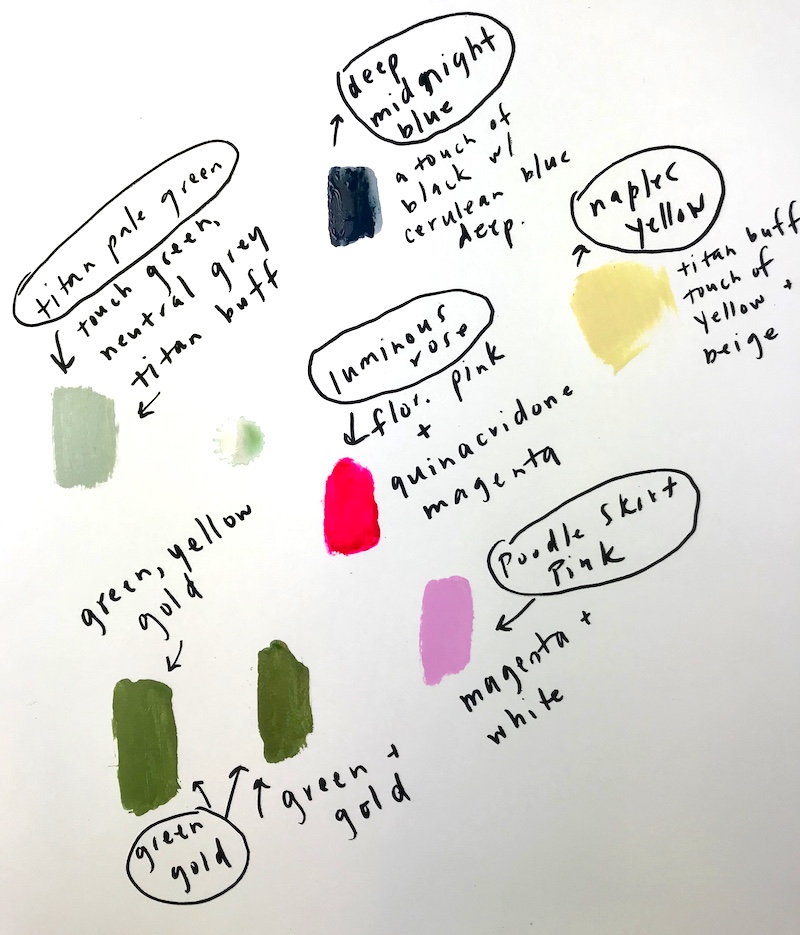 deep
midnight
blue
a touch of
black w/
cerulean blue
deep.
titan pale green
touch green,
neutral grey
titan buff
naples
yellow
titan buff
touch of
yellow +
beige
luminous
rose
flor. pink
+
quinacridone
magenta
poodle skirt
pink
magenta +
white
green, yellow
gold
green +
gold
green
gold